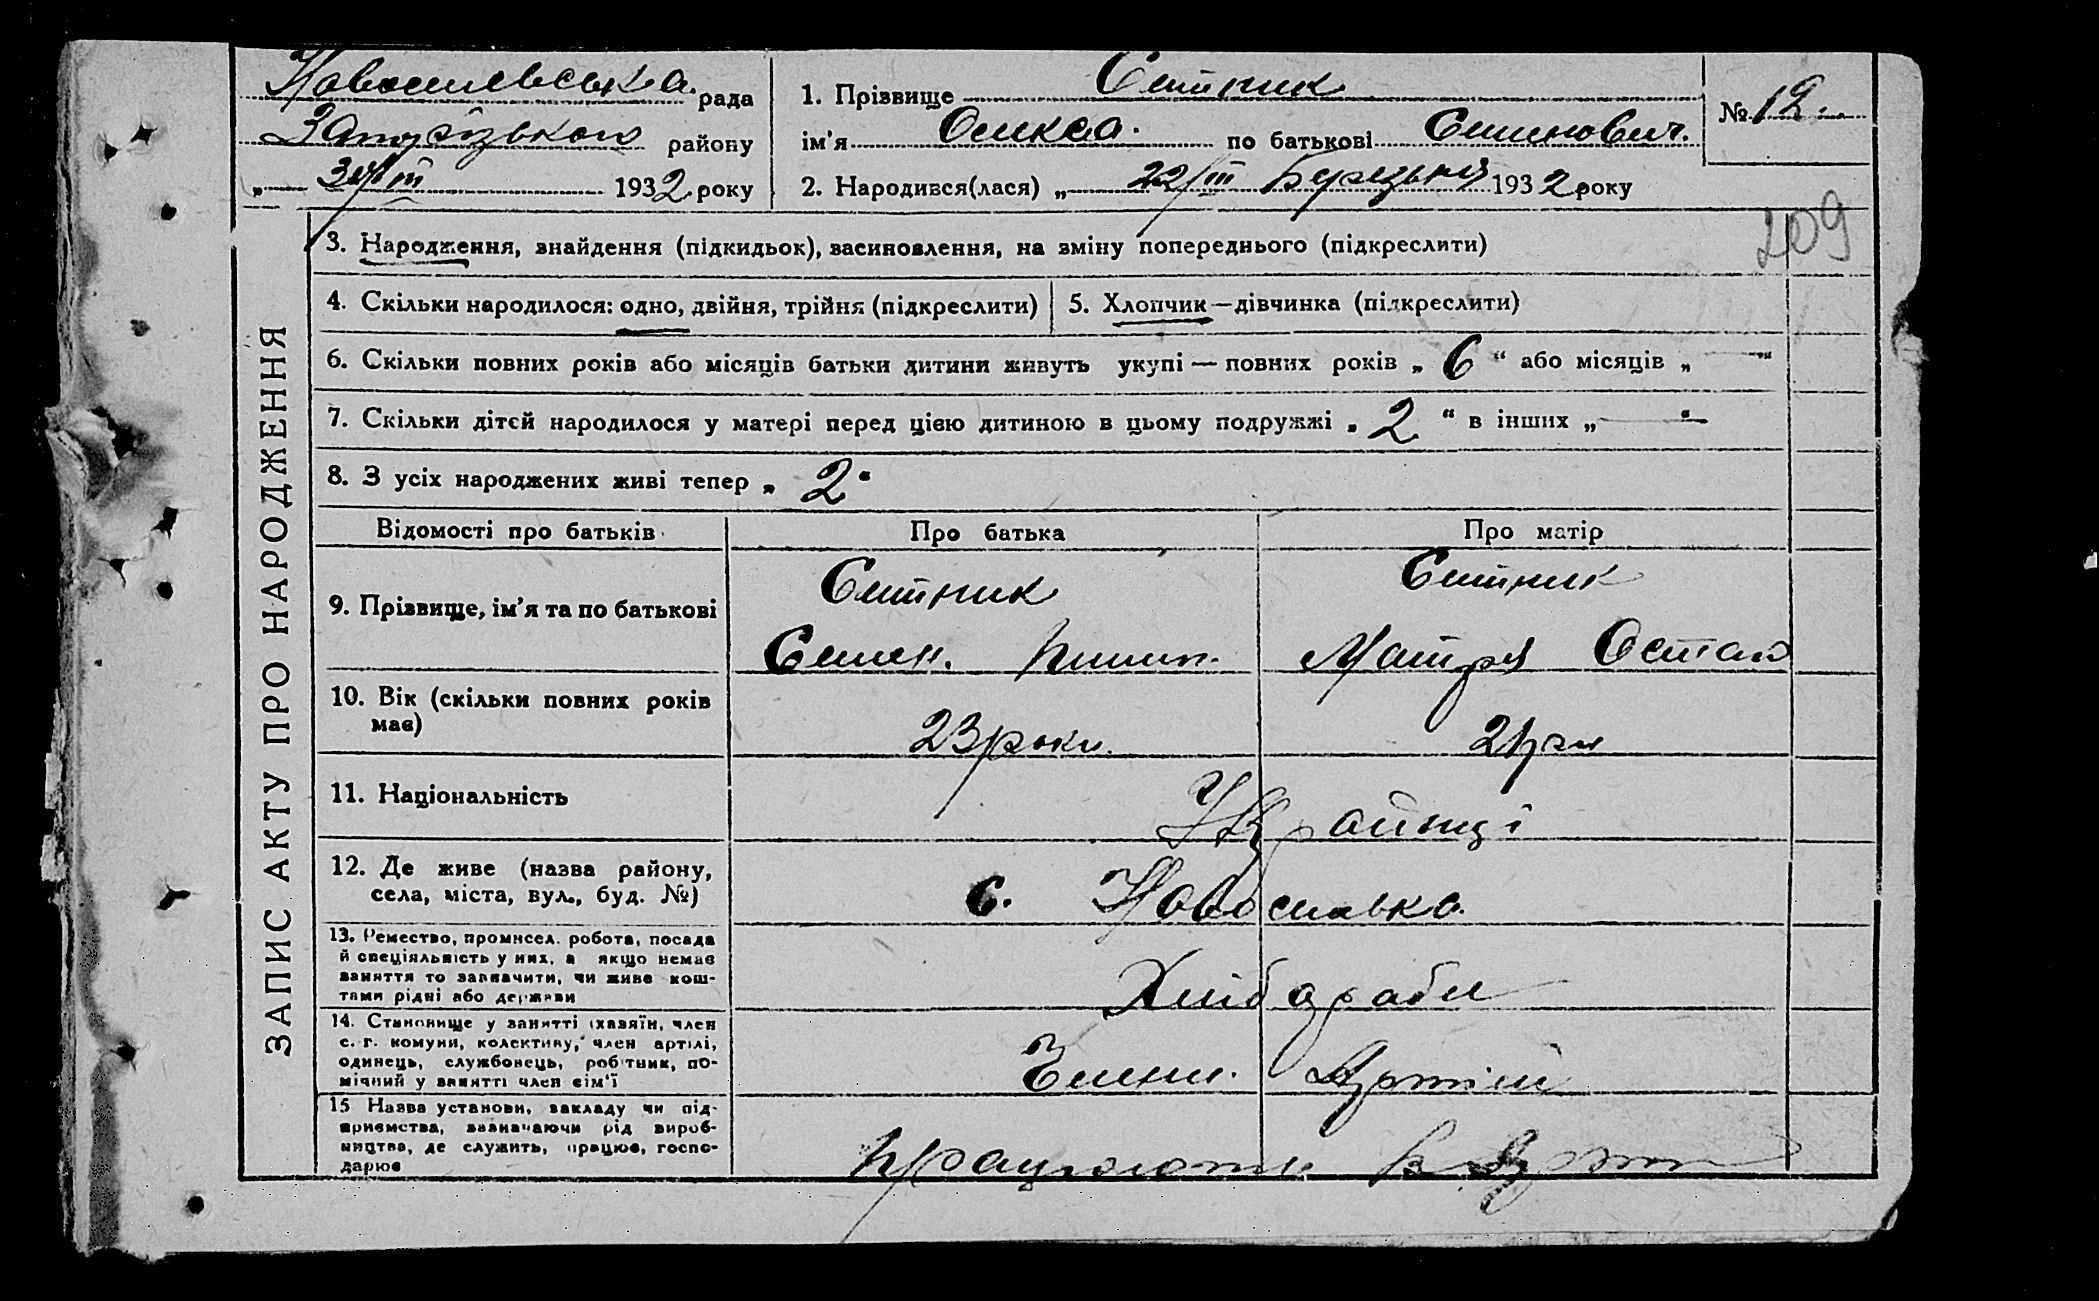 Новоселевська рада
району
"— 3 1932 року
1. Прізвище Ситник
ім'я Олекса. по батькові Семенович.
2. Народився(лася) „ 22/III Березьня 1932 року
№ 12.
209
ЗАПИС АКТУ ПРО НАРОДЖЕННЯ
3. Народження, знайдення (підкидьок), засиновлення, на зміну попереднього (підкреслити)
4. Скільки народилося: одно, двійня, трійня (підкреслити)
5. Хлопчик—дівчинка (підкреслити)
6. Скільки повних років або місяців батьки дитини живуть укупі — повних років „ 6 “ або місяців „ — “
7. Скільки дітей народилося у матері перед цією дитиною в цьому подружжі „ 2 “ в інших „ — “
8. З усіх народжених живі тепер „ 2 “
Відомості про батьків Про батька Про матір
9. Прізвище, ім'я та по батькові
Ситник Ситник
Семен. Пилип. Мотря Остап
10. Вік (скільки повних років має)
23 роки.
11. Національність
Українці
12. Де живе (назва району, села, міста, вул., буд. №)
с. Новоселівка.
13. Ремество, промисел. робота, посада
й спеціяльність у них, а якщо немає
заняття то зазначити, чи живе кош-
тами рідні або держави
Хлібороби
14. Становище у занятті (хазяїн, член
с. г. комуни, колективу, член артілі,
одинець, службовець, робітник, по-
мічний у занятті член сім'ї
Члени. Артіли
15 Назва установи, закладу чи під-
приємства, зазначаючи рід вироб-
ництва, де служить, працює, госпо-
дарює
Працюють в Арт